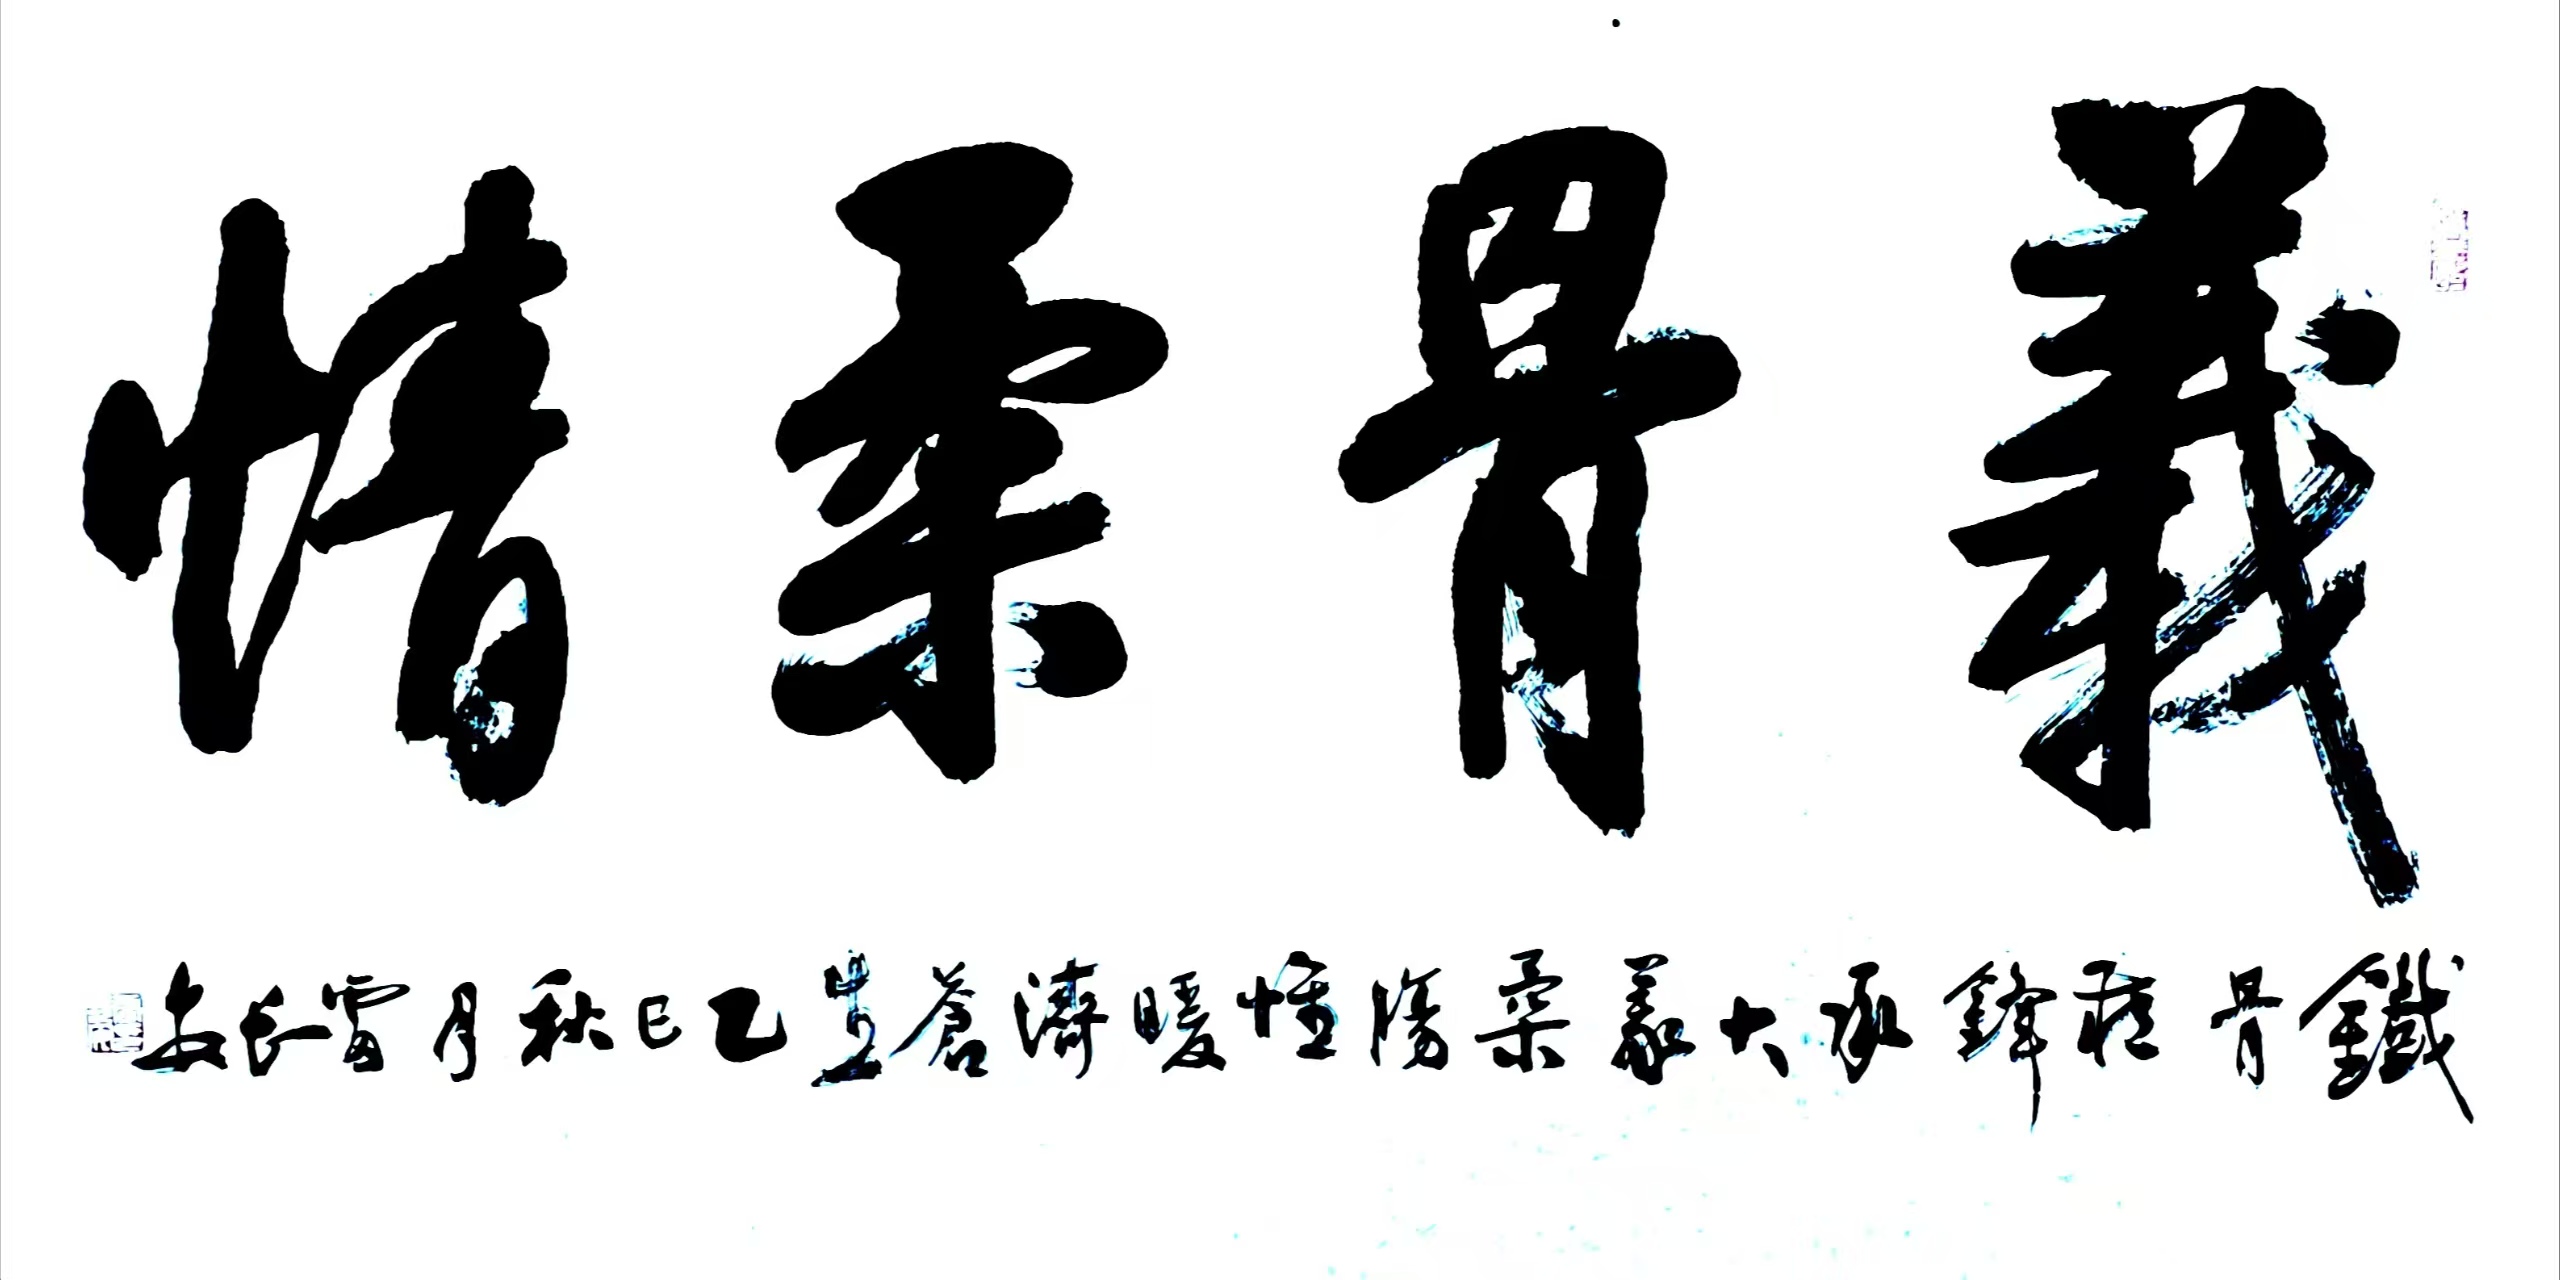 義骨柔情
鐵骨鋒承大義柔腸暖濟蒼生乙巳秋月雷長安